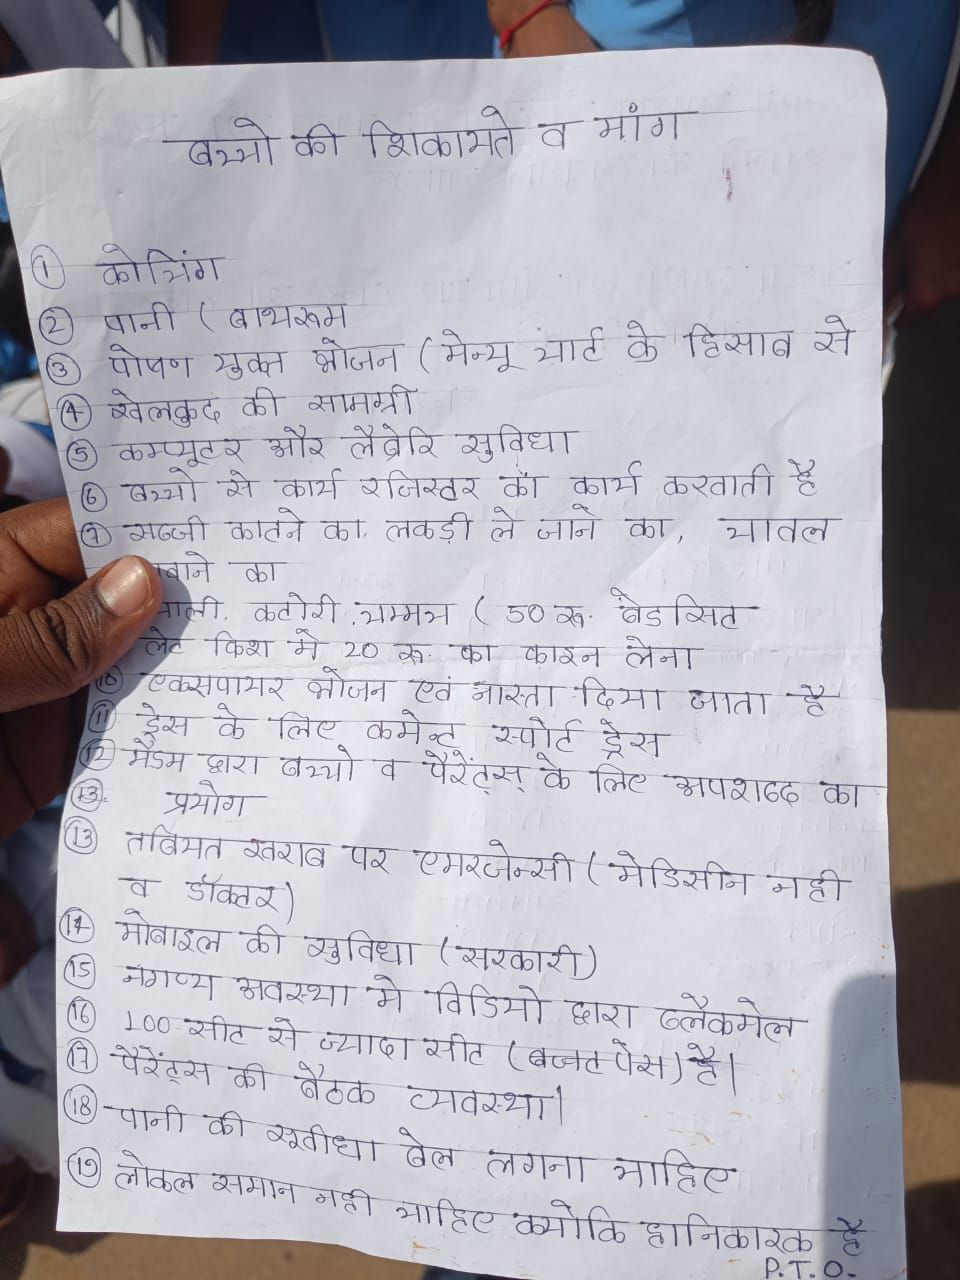 बच्चो की शिकायते व मांग
① कोचिंग
② पानी ( बाथरूम
③ पोषण युक्त भोजन ( मेन्यू चार्ट के हिसाब से
④ खेलकुद की सामग्री
⑤ कम्प्यूटर और लैब्रेरि सुविधा
⑥ बच्चो से कार्य रजिस्तर का कार्य करवाती है
⑦ सब्जी काटने का, लकड़ी ले जाने का, चावल
का
कटोरी, चम्मच ( 50 रू. बेडसिट
लेट फिश मे 20 रू. का फाइन लेना
⑩ एक्सपायर भोजन एवं नास्ता दिया जाता है
⑪ ड्रेस के लिए कमेन्ट स्पोर्ट ड्रेस
⑫ मैडम द्वारा बच्चो व पैरेंट्स् के लिए अपशब्द का
⑬. प्रयोग
⑬ तबियत खराब पर एमरजेन्सी ( मेडिसीन नही
व डॉक्टर )
⑭ मोबाइल की सुविधा ( सरकारी )
⑮ नगण्य अवस्था मे विडियो द्वारा ब्लैकमेल
⑯ 100 सीट से ज्यादा सीट ( बजट पेस ) है।
⑰ पैरेंट्स की बैठक व्यवस्था।
⑱ पानी की सुवीधा बेल लगना चाहिए
⑲ लोकल समान नही चाहिए क्योकि हानिकारक है
P.T.O.